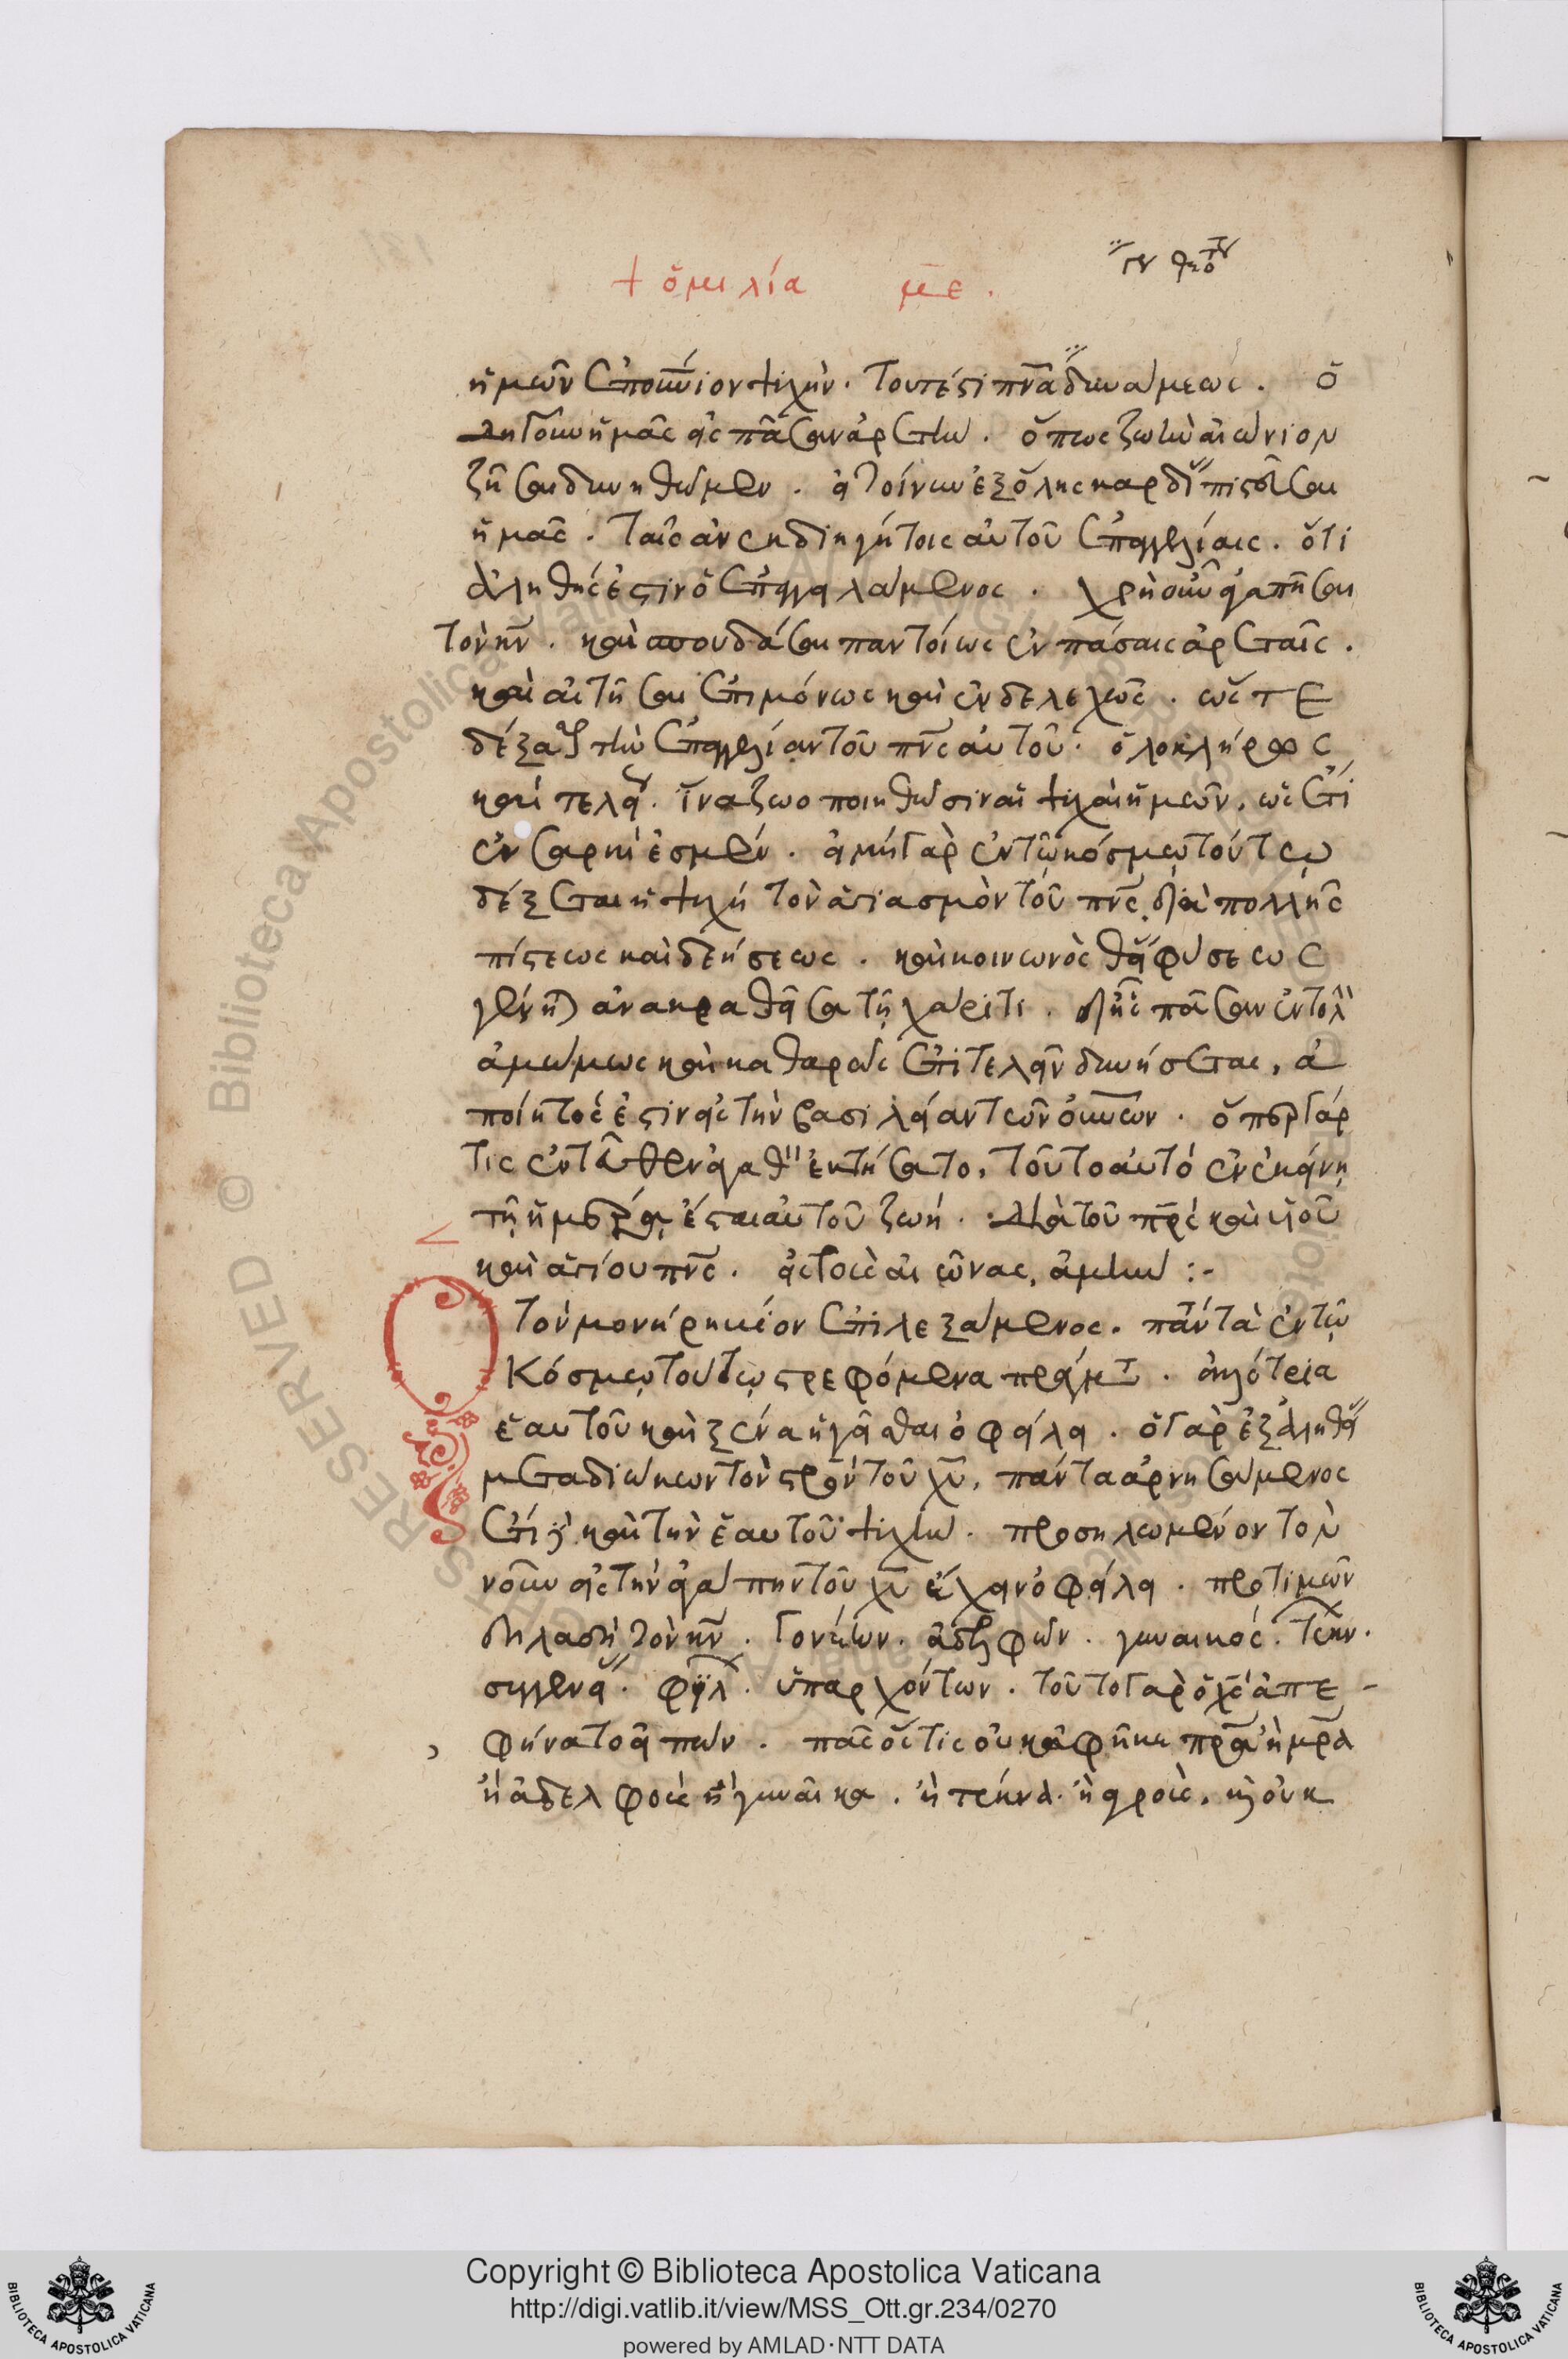 + ὁμιλία με.
ἡμῶν ἐπουνίον ψυχὴν. τουτέστι πνᾶ δυνάμεως. ὁ
ὁδηγοῦν ἡμᾶς εἰς πᾶσαν ἀρετὴν. ὅπως ζωὴν αἰώνιον
ζῆσαι δυνηθῶμεν. δεῖ τοίνυν ἐξ ὅλης καρδί πιστεῦσαι
ἡμᾶς. ταῖς ἀνεκδιηγήτοις αὐτοῦ ἐπαγγελίαις. ὅτι
ἀληθής ἐστιν ὁ ἐπαγγειλάμενος. χρὴ οὖν ἀγαπῆσαι
τὸν κν. καὶ σπουδάσαι παντοίως ἐν πάσαις ἀρεταῖς.
καὶ αἰτῆσαι ἐπιμόνως καὶ ἐνδελεχῶς. ὥστε
δέξασθαι τὴν ἐπαγγελίαν τοῦ πνς αὐτοῦ. ὁλοκλήρως
καὶ τελείως. ἵνα ζωοποιηθῶσιν αἱ ψυχαὶ ἡμῶν. ὡς ἔτι
ἐν σαρκί ἐσμέν. εἰ μὴ γὰρ ἐν τῷ κόσμῳ τούτῳ
δέξεται ἡ ψυχὴ τὸν ἁγιασμὸν τοῦ πνς διὰ πολλῆς
πίστεως καὶ δεήσεως. καὶ κοινωνὸς θείας φύσεως
γένηται ἀνακραθεῖσα τῇ χάριτι. δι' ἧς πᾶσαν ἐντολ
ἀμώμως καὶ καθαρῶς ἐπιτελεῖν δυνήσεται, ἀ
ποίητός ἐστιν εἰς τὴν βασιλείαν τῶν οὐνῶν. ὅπερ γάρ
τις ἐντεῦθεν ἀγαθ ἐκτήσατο, τοῦτο αὐτό ἐν ἐκείνῃ
τῇ ἡμέρᾳ, ἔσται αὐτοῦ ζωή. διὰ τοῦ πρς καὶ υἱοῦ
καὶ ἁγίου πνς. εἰς τοὺς αἰῶνας, ἀμήν :-
Ὁ τὸν μονήρη βίον ἐπιλεξάμενος. πάντα τὰ ἐν τῷ
κόσμῳ τούτῳ στρεφόμενα πράγματ. ἀλλότρια
ἑαυτοῦ καὶ ξένα ἡγεῖσθαι ὀφείλει. ὁ γὰρ ἐξ ἀληθεί
μεταδιώκων τὸν στρὸν τοῦ χυ, πάντα ἀρνησάμενος
ἔτι γε καὶ τὴν ἑαυτοῦ ψυχήν. προσηλωμένον τὸν
νοῦν εἰς τὴν ἀγάπην τοῦ χυ ἔχειν ὀφείλει. προτιμῶν
δηλαδὴ τὸν κν. γονέων. ἀδελφῶν. γυναικός. τέκν.
συγγενεί. φίλ. ὑπαρχόντων. τοῦτο γὰρ ὁ χς ἀπε-
φήνατο εἰπών. πᾶς ὅστις οὐκ ἀφῆκε πρα ἢ μρα
ἢ ἀδελφοὺς ἢ γυναῖκα. ἢ τέκνα. ἢ ἀγροὺς. καὶ οὐκ
Copyright © Biblioteca Apostolica Vaticana
http://digi.vatlib.it/view/MSS_Ott.gr.234/0270
powered by AMLAD·NTT DATA